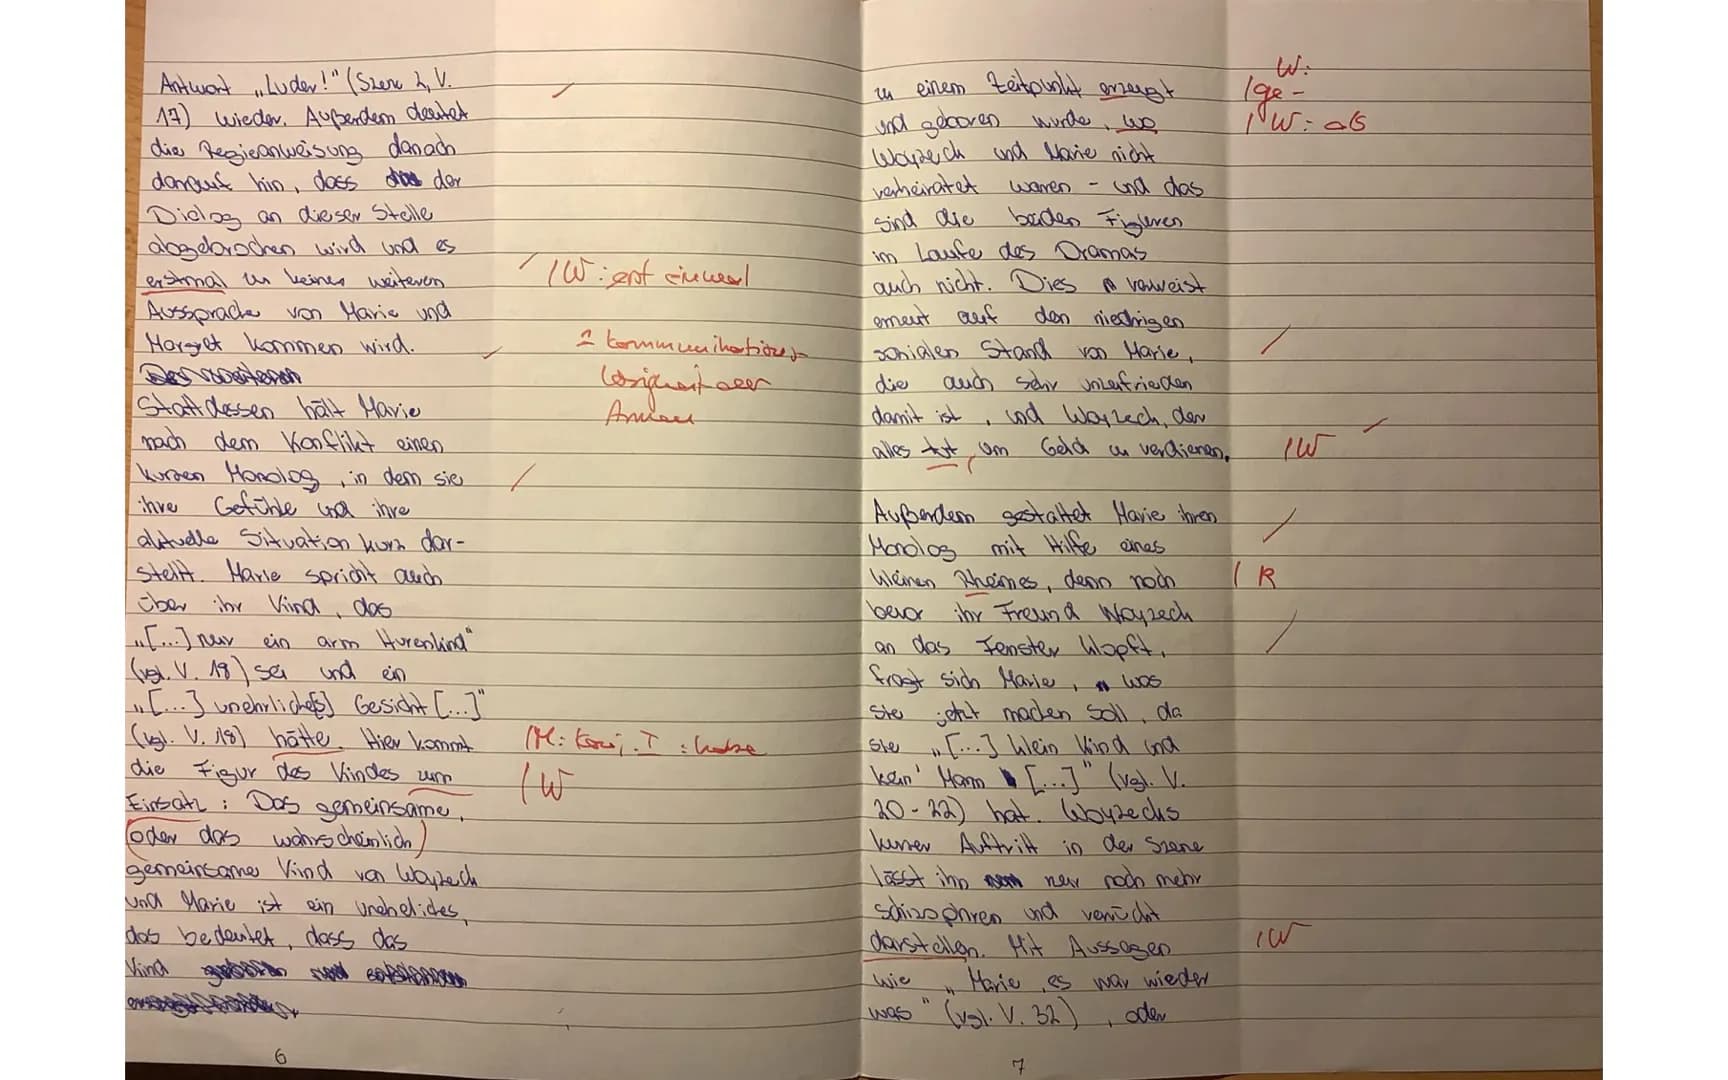 Antwort „Luder!" (Szene 2, V.
17) wieder. Außerdem deutet
die Regieanweisung danach
darauf hin, dass der
Dialog an dieser Stelle
abgebrochen wird und es
erstmal zu keiner weiteren
/W: erst einmal
Aussprache von Marie und
Margret kommen wird.
kommunikations-
losigkeit der
Armen
Stattdessen hält Marie
nach dem Konflikt einen
kurzen Monolog, in dem sie
ihre Gefühle und ihre
aktuelle Situation kurz dar-
stellt. Marie spricht auch
über ihr Kind, das
„[...] nur ein arm Hurenkind"
(vgl. V. 18) sei und ein
„[...] unehrliche[s] Gesicht [...]"
(vgl. V. 18) hätte. Hier kommt
/M: Konj. I : habe
die Figur des Kindes zum
/W
Einsatz: Das gemeinsame,
(oder das wahrscheinlich)
gemeinsame Kind von Woyzeck
und Marie ist ein uneheliches,
das bedeutet, dass das
Kind
6
zu einem Zeitpunkt erzeugt
W:
/ge-
und geboren wurde, wo
/W: als
Woyzeck und Marie nicht
verheiratet waren - und das
sind die beiden Figuren
im Laufe des Dramas
auch nicht. Dies verweist
erneut auf den niedrigen
sozialen Stand von Marie,
die auch sehr unzufrieden
damit ist, und Woyzeck, der
alles tut, um Geld zu verdienen.
/W
Außerdem gestaltet Marie ihren
Monolog mit Hilfe eines
kleinen Rheimes, denn noch
/R
bevor ihr Freund Woyzeck
an das Fenster klopft,
fragt sich Marie, was
sie jetzt machen soll, da
sie „[...] klein Kind und
kein' Mann [...]" (vgl. V.
20-22) hat. Woyzecks
kurzer Auftritt in der Szene
lässt ihn nur noch mehr
schizophren und verrückt
darstellen. Mit Aussagen
/W
wie „Marie, es war wieder
was" (vgl. V. 32), oder
7